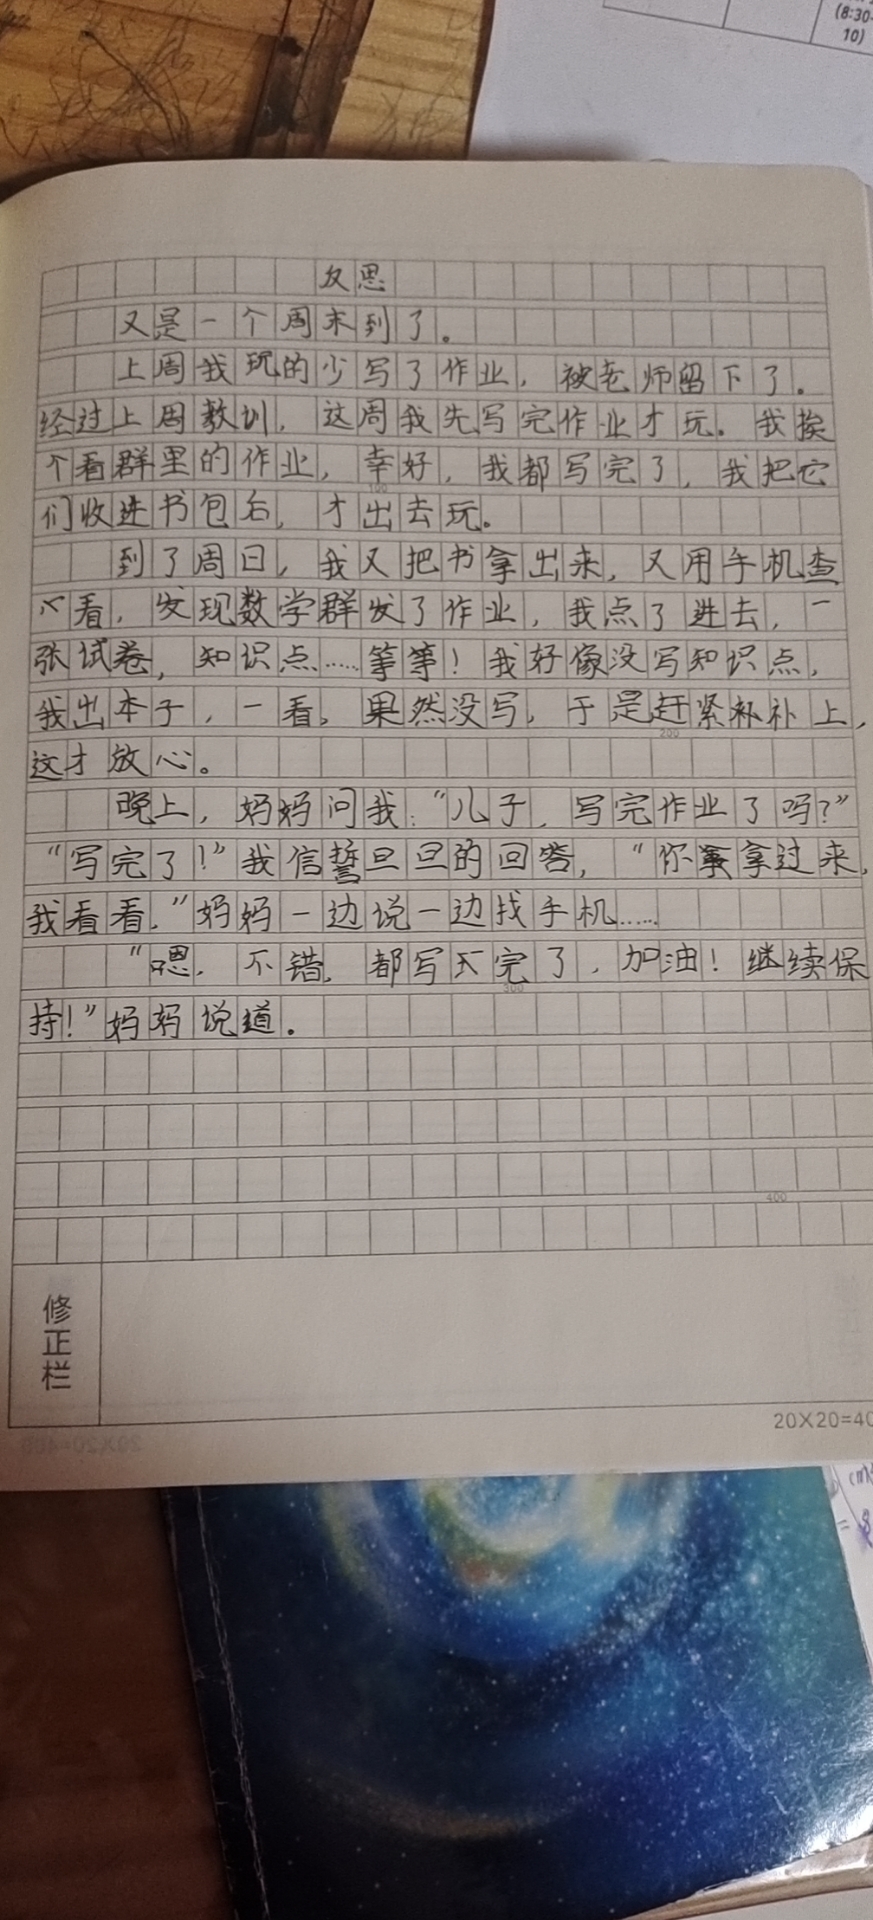 (8:30-
10)
反思
又是一个周末到了。
上周我玩的少写了作业，被老师留下了。
经过上周教训，这周我先写完作业才玩。我挨
个看群里的作业，幸好，我都写完了，我把它
们收进书包后，才出去玩。
到了周日，我又把书拿出来，又用手机查
看，发现数学群发了作业，我点了进去，一
张试卷，知识点……等等！我好像没写知识点，
我出本子，一看，果然没写，于是赶紧补补上，
200
这才放心。
晚上，妈妈问我：“儿子，写完作业了吗？”
“写完了！”我信誓旦旦的回答，“你拿过来，
我看看，”妈妈一边说一边找手机……
“嗯，不错，都写完了，加油！继续保
300
持！”妈妈说道。
400
修正栏
20×20=40